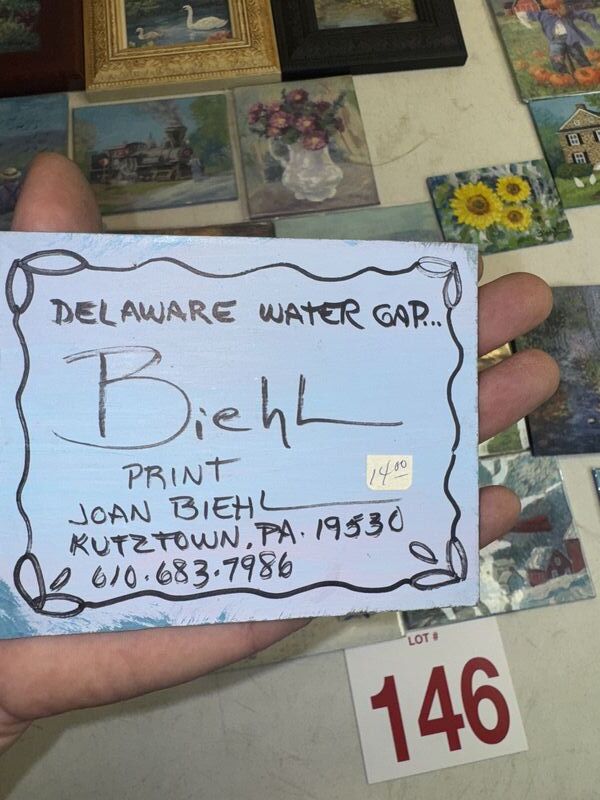 DELAWARE WATER GAP...
Biehl
PRINT
14.00
JOAN BIEHL
KUTZTOWN, PA. 19530
610.683.7986
LOT #
146